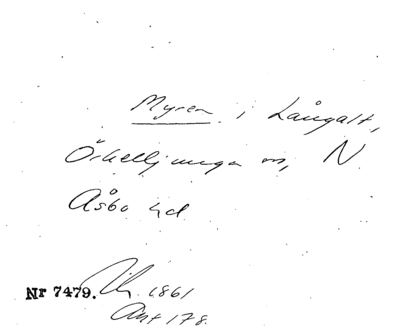 Myren i Långalt,
Örkelljunga sn, N.
Åsbo hd
Nr 7479. 1861
Ant 178.